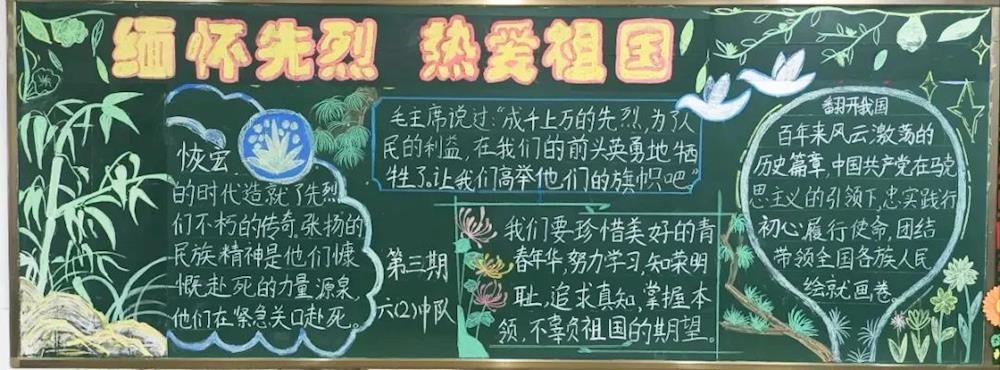 缅怀先烈 热爱祖国
恢宏
的时代造就了先烈
们不朽的传奇,张扬的
民族精神是他们慷
慨赴死的力量源泉,
他们在紧急关口赴死。
毛主席说过:“成千上万的先烈,为了人
民的利益,在我们的前头英勇地牺
牲了。让我们高举他们的旗帜吧”
第三期
六(2)中队
我们要珍惜美好的青
春年华,努力学习,知荣明
耻,追求真知,掌握本
领,不辜负祖国的期望。
翻开我国
百年来风云激荡的
历史篇章,中国共产党在马克
思主义的引领下,忠实践行
初心,履行使命,团结
带领全国各族人民
绘就画卷。